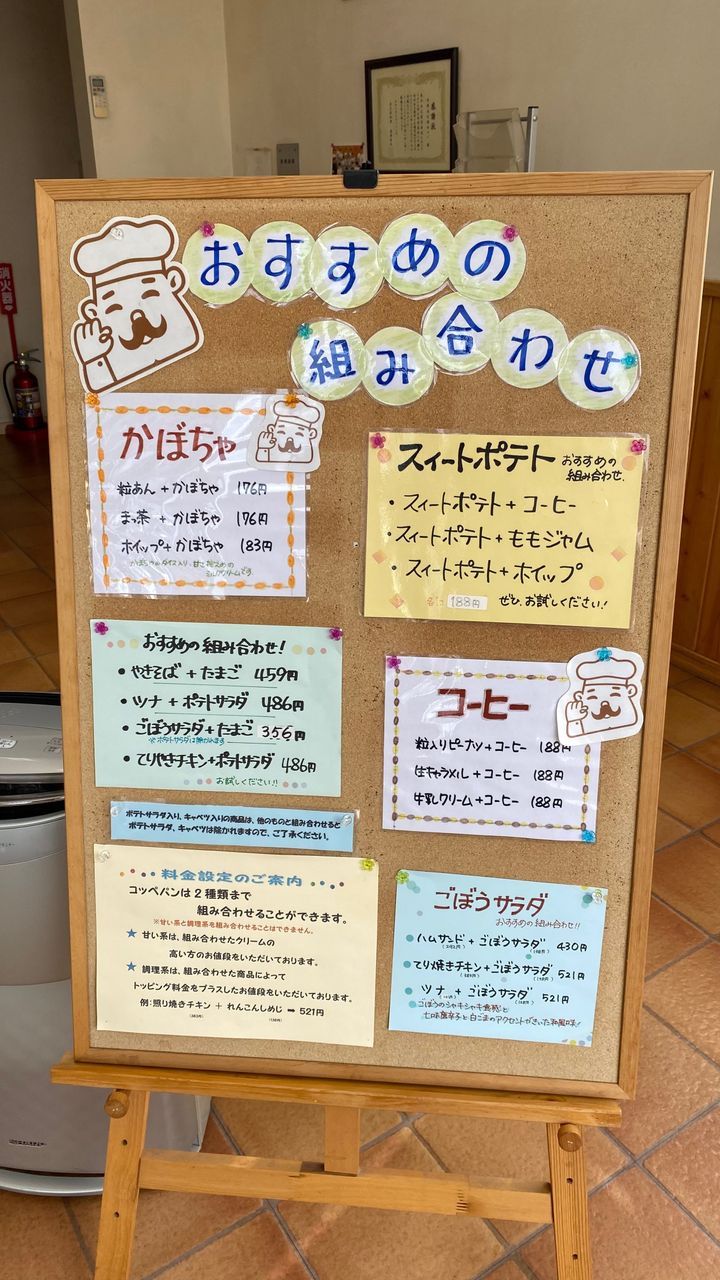 おすすめの
組み合わせ
かぼちゃ
粒あん + かぼちゃ 176円
まっ茶 + かぼちゃ 176円
ホイップ + かぼちゃ 183円
かぼちゃのダイス入り、甘さ控えめの
ミルククリームです。
スィートポテト おすすめの
組み合わせ.
・スィートポテト + コーヒー
・スィートポテト + ももジャム
・スィートポテト + ホイップ
各 188円 ぜひ、お試しください!
おすすめの組み合わせ!
・やきそば + たまご 459円
・ツナ + ポテトサラダ 486円
・ごぼうサラダ + たまご 356円
※ポテトサラダは除かれます
・てりやきチキン + ポテトサラダ 486円
お試しください!!
コーヒー
粒入りピーナツ + コーヒー 188円
生キャラメル + コーヒー 188円
牛乳クリーム + コーヒー 188円
ポテトサラダ入り、キャベツ入りの商品は、他のものと組み合わせると
ポテトサラダ、キャベツは除かれますので、ご了承ください。
料金設定のご案内
コッペパンは2種類まで
組み合わせることができます。
※甘い系と調理系を組み合わせることはできません。
★ 甘い系は、組み合わせたクリームの
高い方のお値段をいただいております。
★ 調理系は、組み合わせた商品によって
トッピング料金をプラスしたお値段をいただいております。
例:照り焼きチキン + れんこんしめじ ➡ 521円
ごぼうサラダ
おすすめの組み合わせ!!
・ハムサンド + ごぼうサラダ 430円
・てり焼きチキン + ごぼうサラダ 521円
・ツナ + ごぼうサラダ 521円
ごぼうのシャキシャキ食感と
七味唐辛子と白ごまのアクセントがきいた和風味!
消火器
感謝状